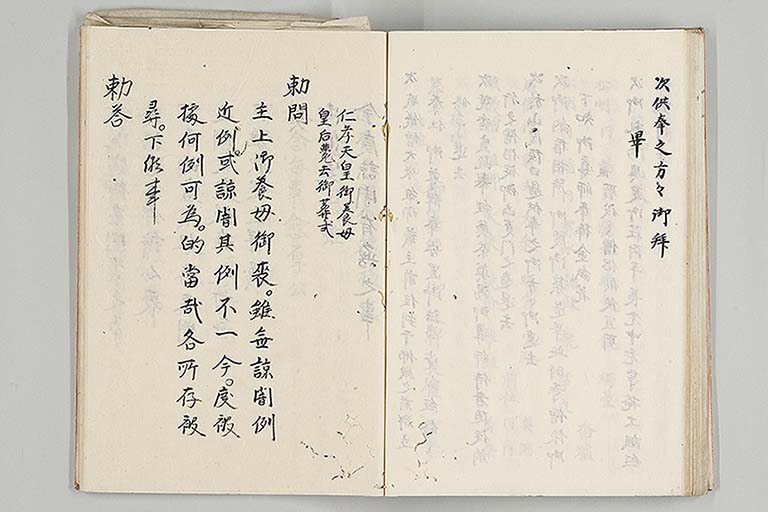 次供奉之方々御拜
畢
仁孝天皇御養母
皇后薨去御葬式
勅問
主上御養母御喪。雖無諒闇例
近例或諒闇其例不一今。度被
據何例可為。的當哉各所存被
尋。下候事
勅答